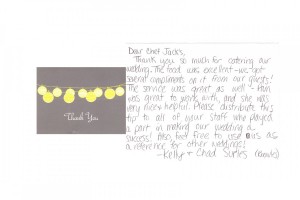 Thank You
Dear Chef Jacks,
Thank you so much for catering our
wedding. The food was excellent - we got
several compliments on it from our guests!
The service was great as well - 
was great to work with, and she was
very very helpful. Please distribute this
tip to all of your staff who played
a part in making our wedding a
success! Also, feel free to use us as
a reference for other weddings!
- Kelly + Chad Surles